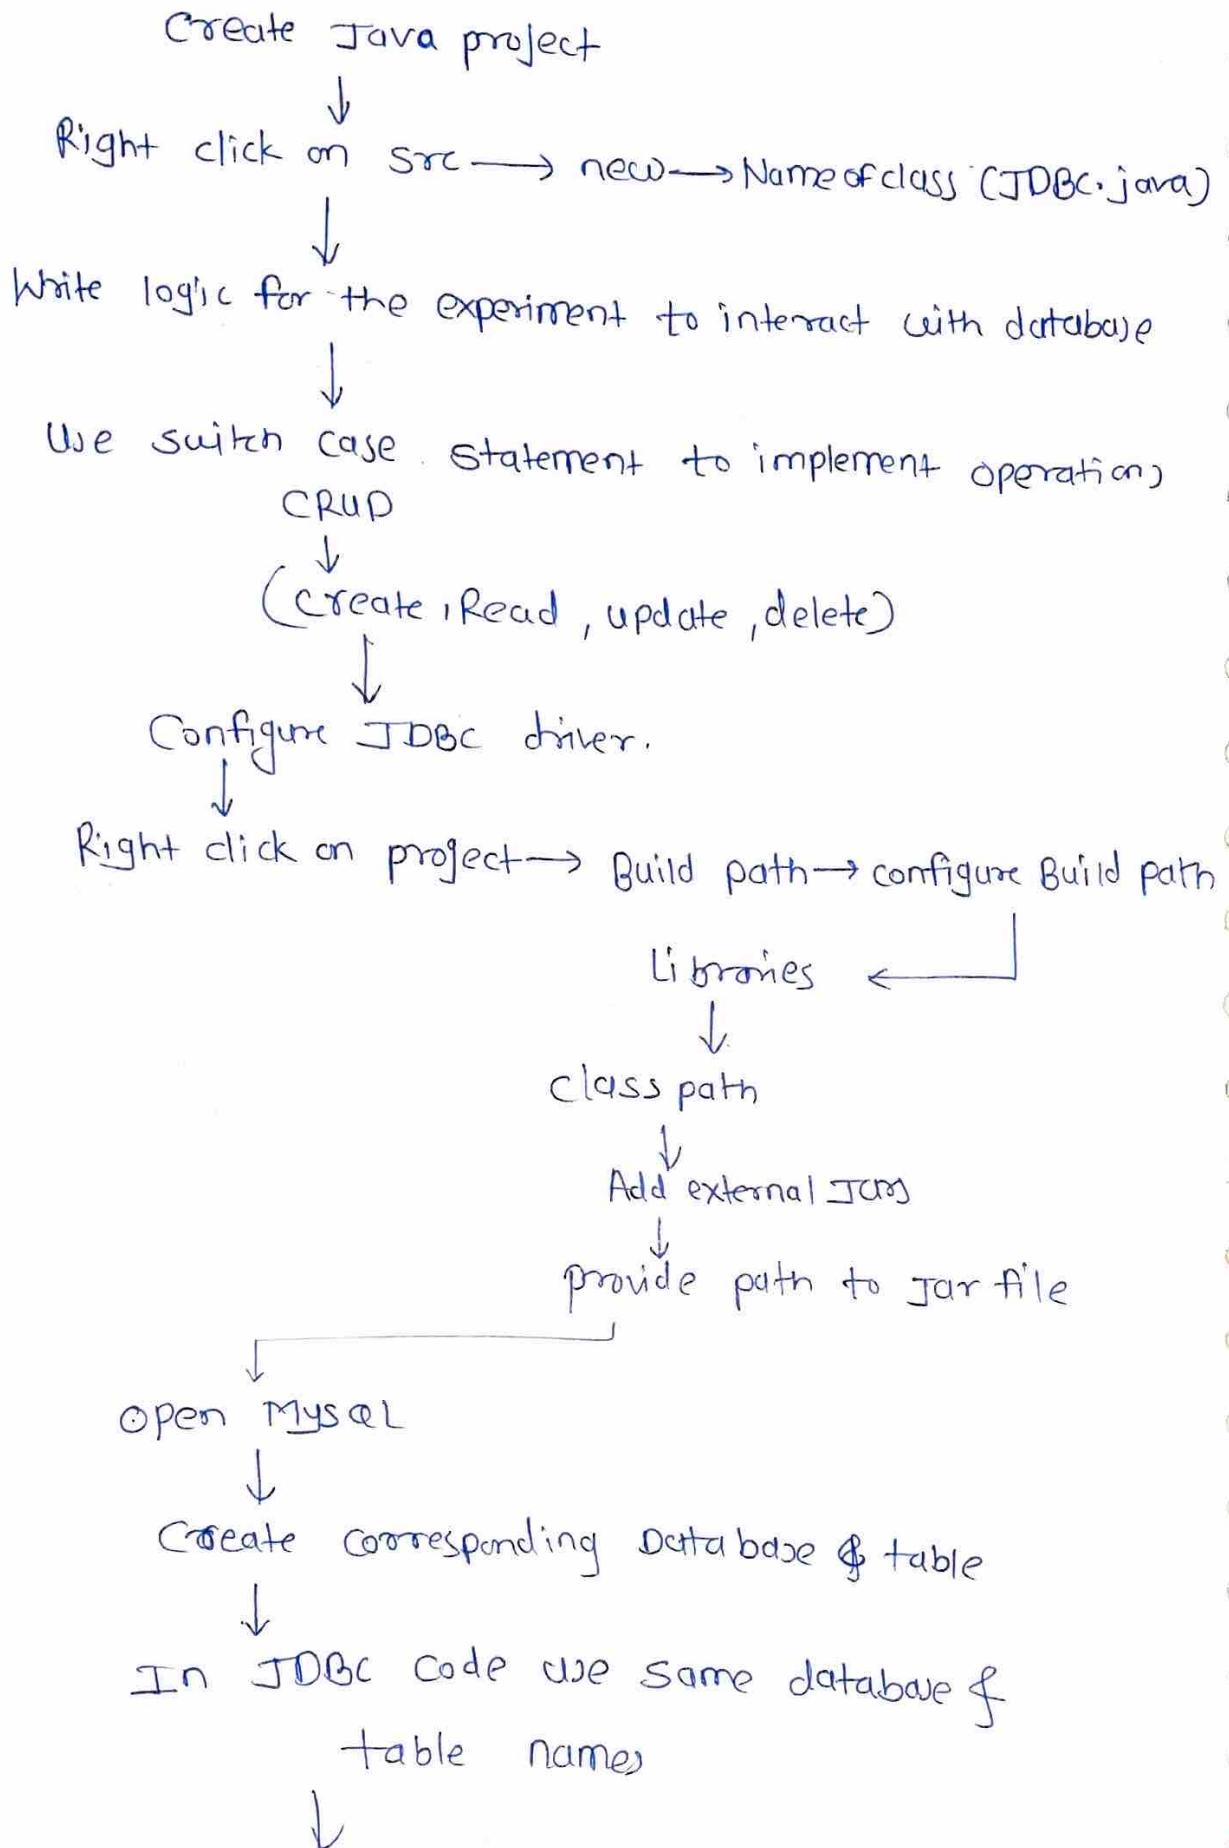 Create Java project
↓
Right click on src → new → Name of class (JDBC.java)
↓
Write logic for the experiment to interact with database
↓
Use switch case statement to implement operations
CRUD
↓
(create, Read, update, delete)
↓
Configure JDBC driver.
↓
Right click on project → Build path → configure Build path
Libraries ←
↓
class path
↓
Add external Jars
↓
provide path to Jar file
↓
open MySQL
↓
Create corresponding Database & table
↓
In JDBC code use same database &
table names
↓